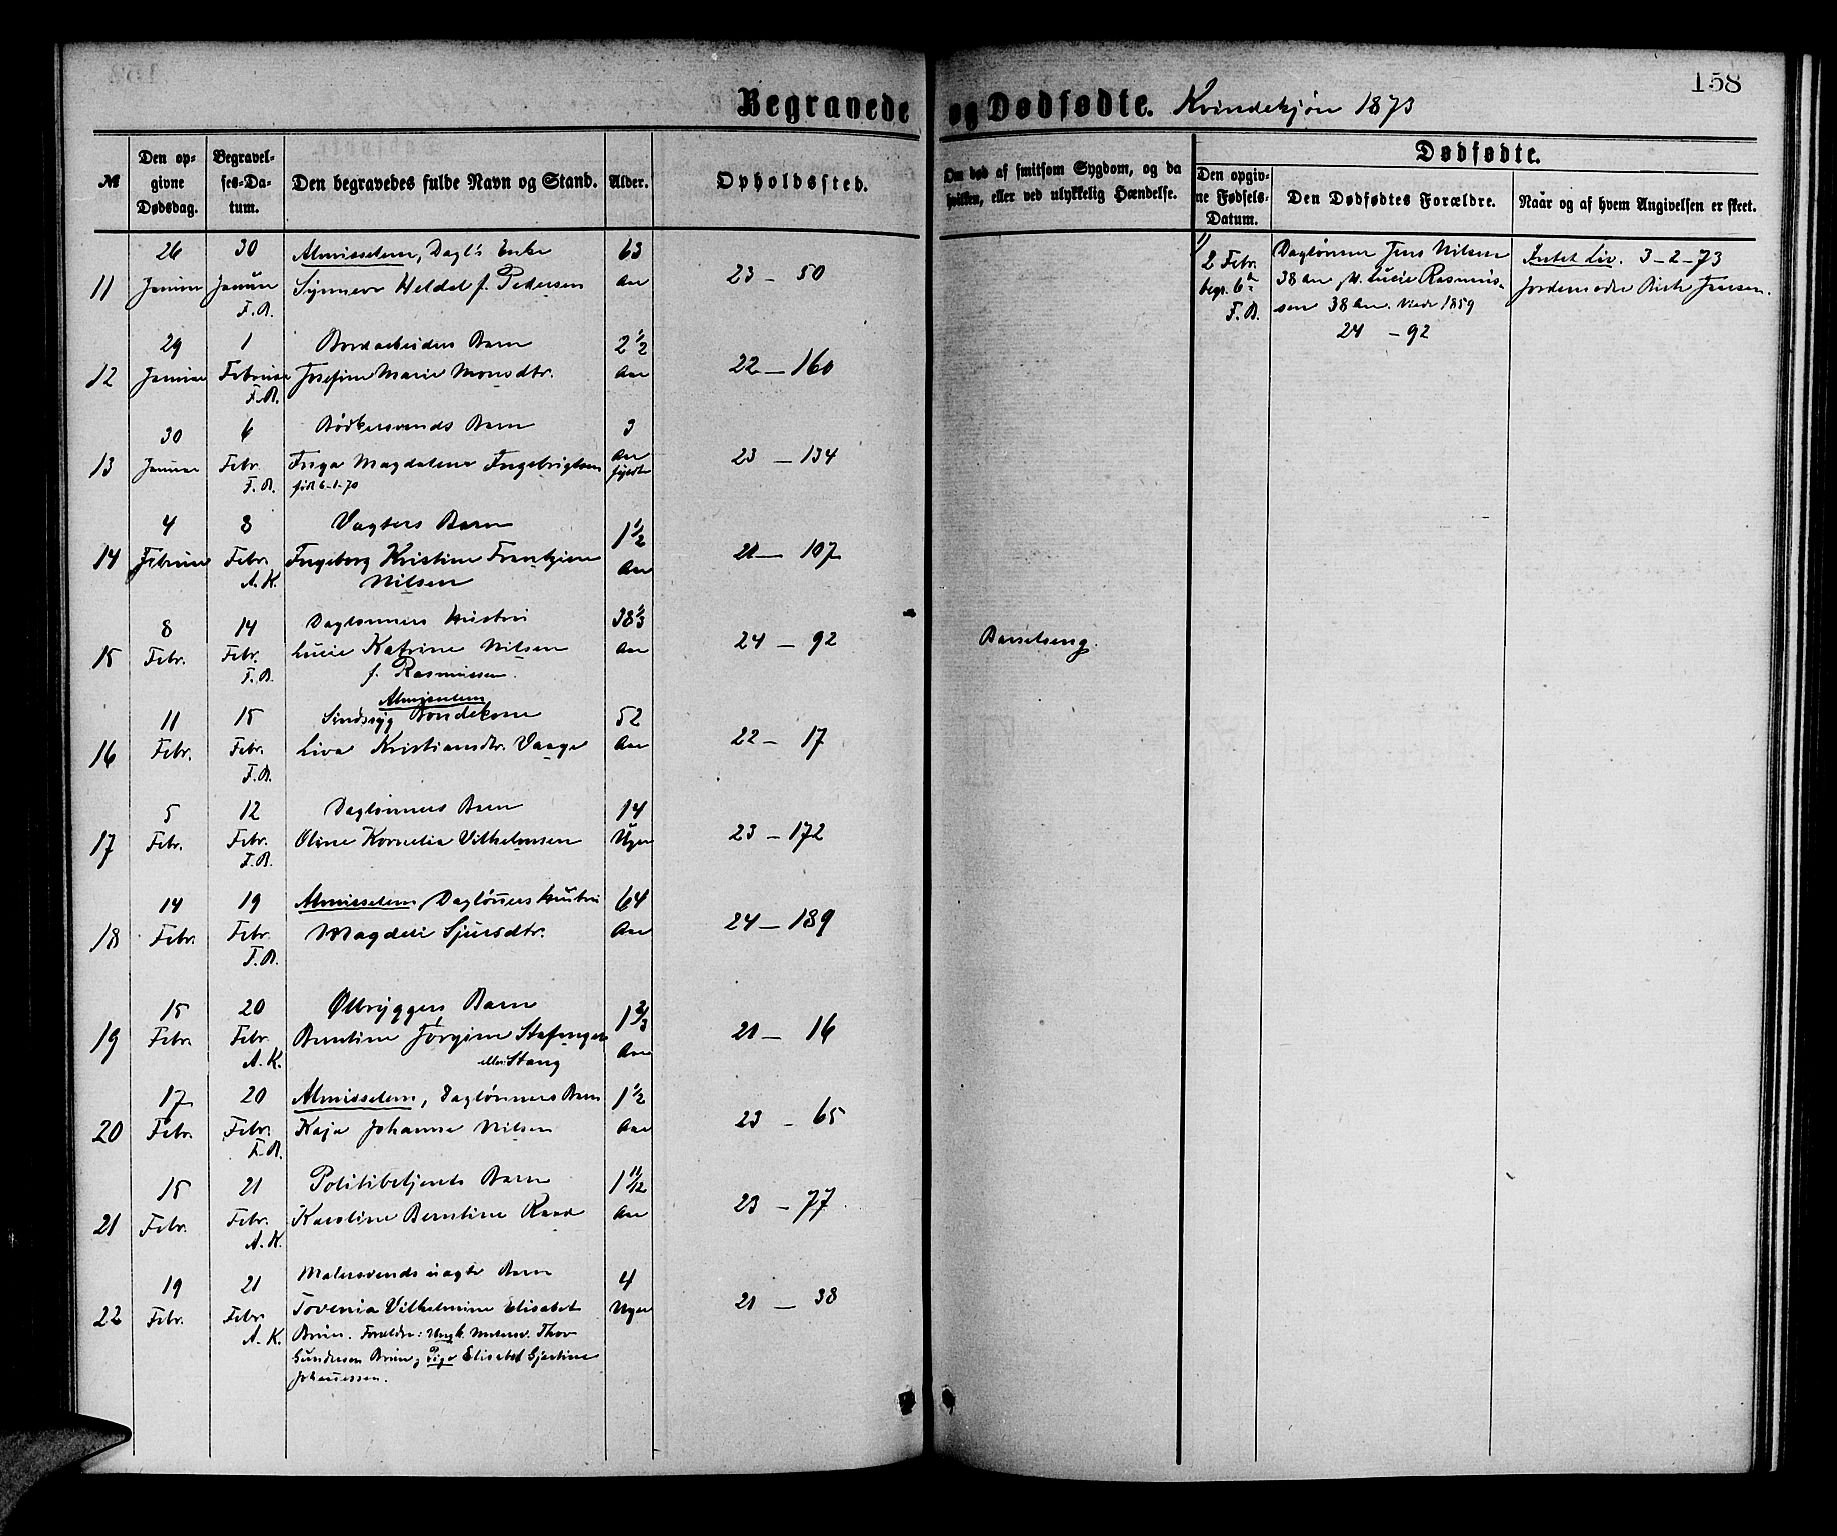 158
Begravede og Dødfødte. Kvindekjøn 1873
№
Den opgivne Dødsdag.
Begravelses-Datum.
Den begravedes fulde Navn og Stand.
Alder.
Opholdssted.
Om død af smitsom Sygdom, og da hvilken, eller ved ulykkelig Hændelse.
Dødfødte.
Den opgivne Fødsels-Datum.
Den Dødfødtes Forældre.
Naar og af hvem Angivelsen er skeet.
26 30 Almisselem, Dagl's Enke 63
11 Januar Januar Synneve Heldal f. Pedersen Aar 23 – 50
F.B.
29 1 Bordarbeiders Barn 2 1/2
12 Januar Februar Josefine Marie Monsdtr. Aar 22 – 160
F.B.
30 6 Bødkersvends Barn 3
13 Januar Febr. Inga Magdalena Ingebrigtsen Aar 23 – 134
F.B. født 6-1-70
4 8 Vægters Barn 1 1/2
14 Februar Febr. Ingeborg Kristine Frantzine Aar 21 – 107
A.K. Nilsen
8 14 Dagtønners Hustru 38 1/3
15 Febr. Febr. Lucie Katrine Nilsen Aar 24 – 92 Barselseng.
F.B. f. Rasmussen.
Almisselem
11 15 Sindssyg Bondekone 52
16 Febr. Febr. Liva Kristiansdtr. Vaage Aar 22 – 17
F.B.
5 12 Daglønners Barn 14
17 Febr. Febr. Oline Kornelia Vilhelmsen Uger 23 – 172
F.B.
14 19 Almisselem, Daglønners Hustru 64
18 Febr. Febr. Magdeli Sjursdtr. Aar 24 – 189
F.B.
15 20 Ølbryggers Barn 1 2/3
19 Febr. Febr. Berntine Jørgine Aar 21 – 16
A.K. eller Stang
17 20 Almisselem, Daglønners Barn 1 1/2
20 Febr. Febr. Kaja Johanne Nilsen Aar 23 – 65
F.B.
15 21 Politibetjents Barn 1 11/12
21 Febr. Febr. Karoline Berntine Aar 23 – 77
A.K.
19 21 Malersvends uægte Barn 4
22 Febr. Febr. Tovenia Vilhelmine Elisabet Uger 21 – 38
A.K. Bruun. Forældre: Ungk. Malersv. Thor
Gundersen Bruun og Pige Elisabet Gjertine
Johannessen.
1)
2 Febr. Daglønner Jens Nilsen Intet Liv. 3-2-73
begr. 6 38 Aar, H. Lucie Rasmus- Jordemoder Jensen.
F.B. sen 38 Aar. Viede 1859
24 – 92